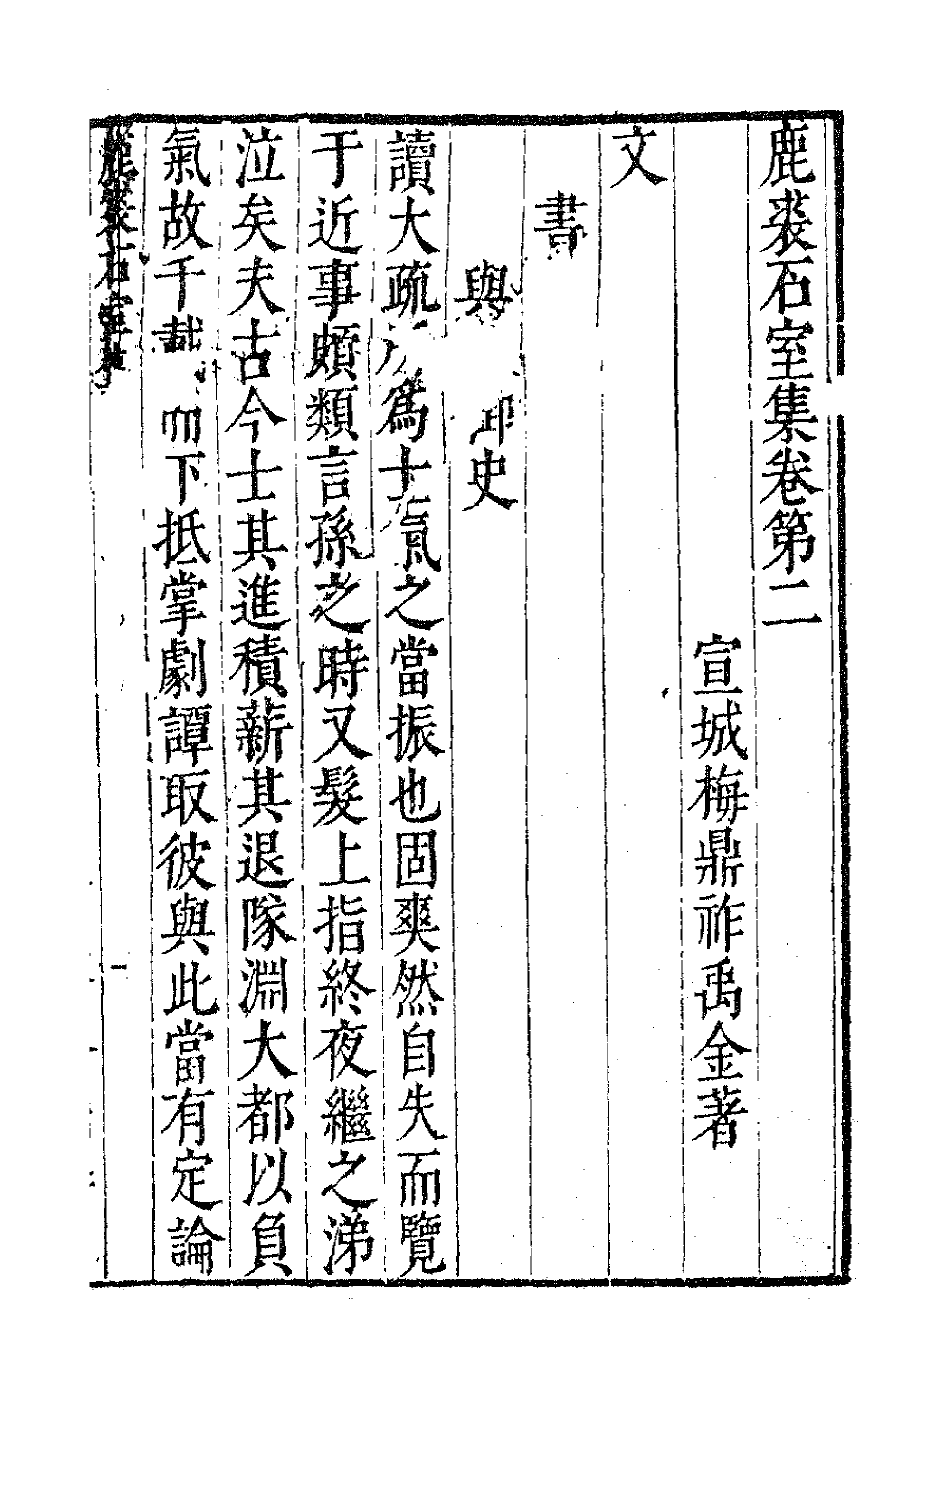 鹿裘石室集卷第二
宣城梅鼎祚禹金著
文
書
與 御史
讀大疏所為士氣之當振也固爽然自失而覽
于近事頗類言孫之時又髮上指終夜繼之涕
泣矣夫古今士其進積薪其退隊淵大都以負
氣故千載而下抵掌劇譚取彼與此當有定論
鹿裘石室集
一